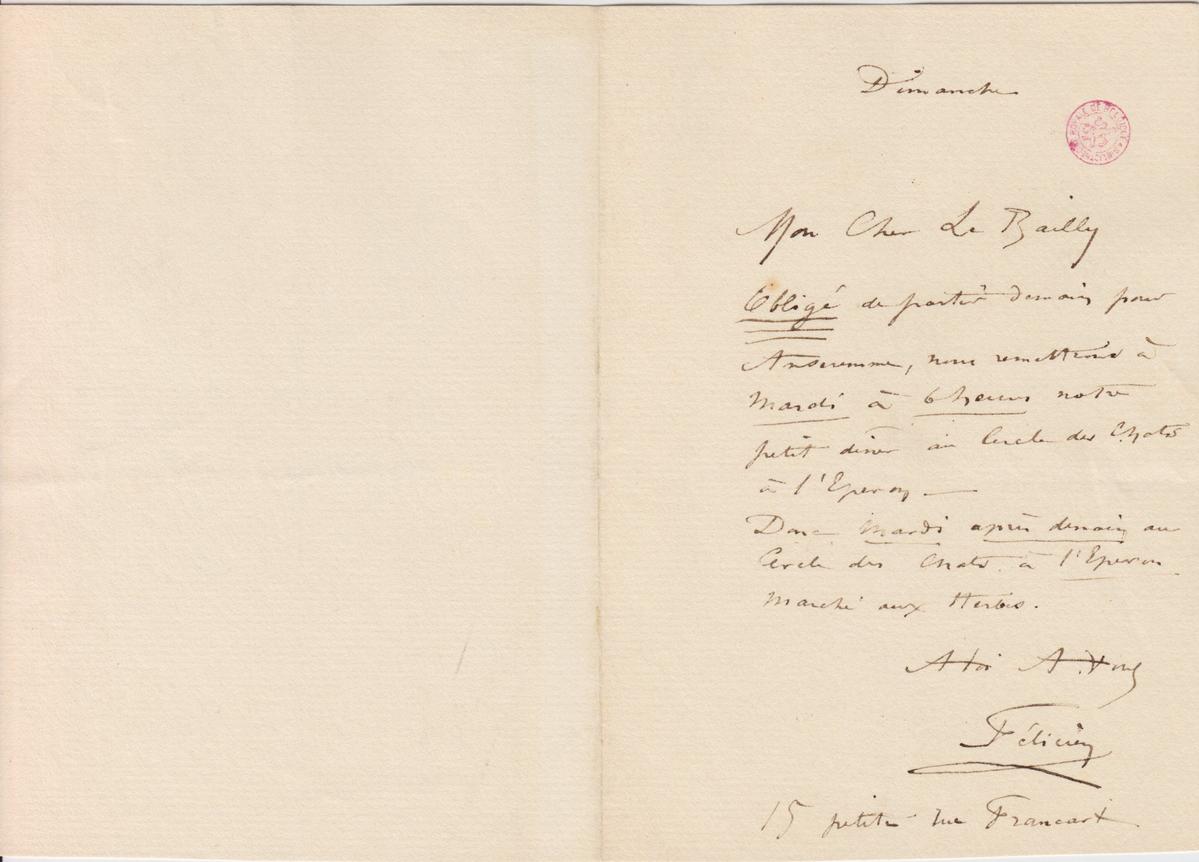 Dimanche
Mon Cher Le Bailly
Obligé de partir demain pour
Anseremme, nous remettrons à
Mardi à 6 heures notre
petit diner au Cercle des Chats
à l'Eperon —
Donc Mardi après demain au
Cercle des Chats à l'Eperon
Marché aux Herbes.
A toi
Félicien
15 petite rue Francart